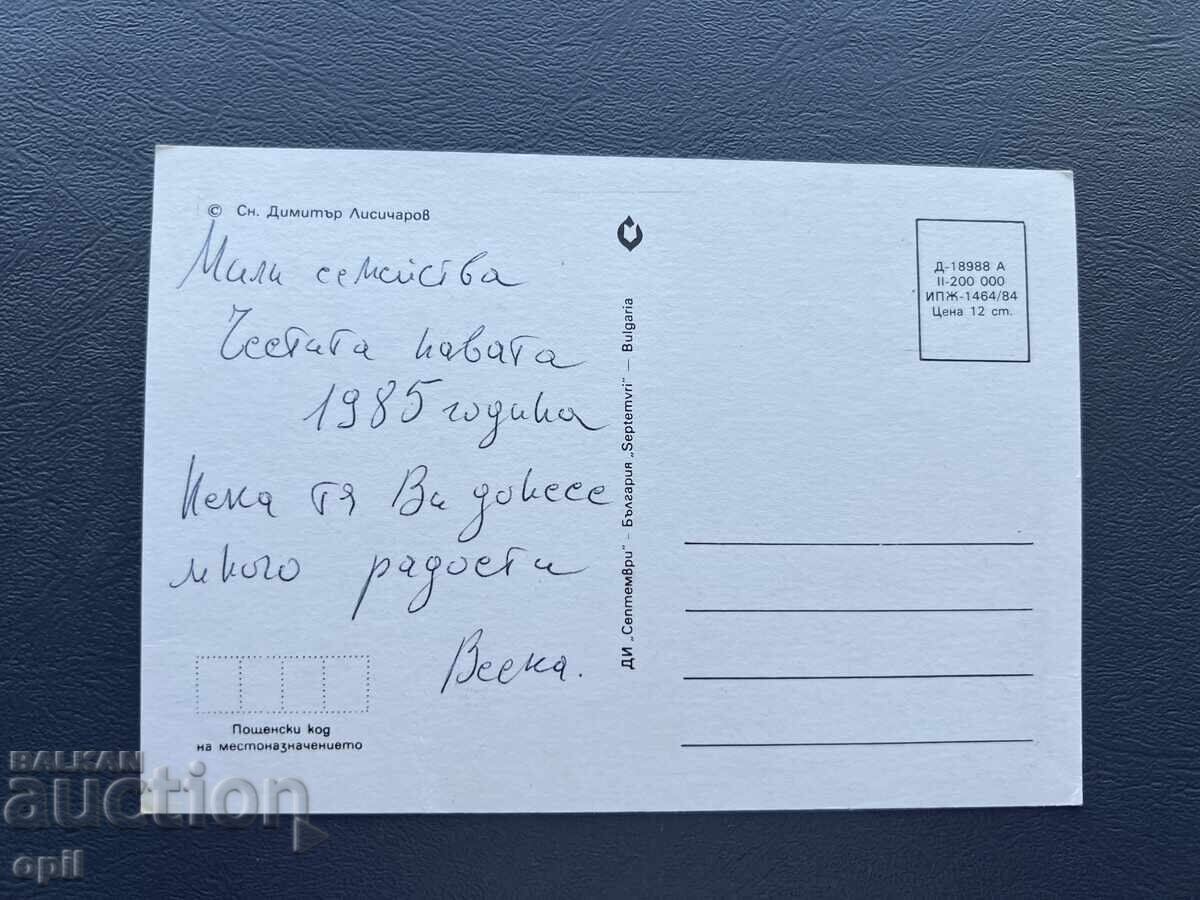 © Сн. Димитър Лисичаров
Мили семейства
Честита навата
1985 година
Нека тя Ви донесе
много радости
Веска.
Пощенски код
на местоназначението
ДИ „Септември" – България „Septemvri" – Bulgaria
Д-18988 А
II-200 000
ИПЖ-1464/84
Цена 12 ст.
BALKAN
auction
opil